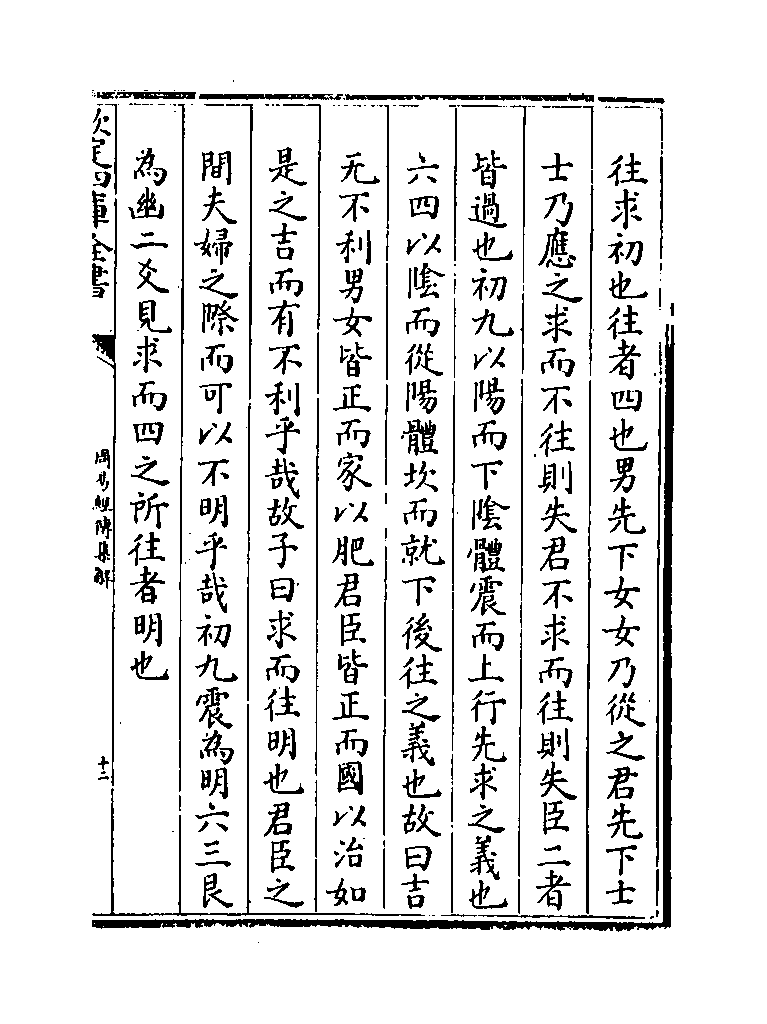 往求初也往者四也男先下女女乃從之君先下士
士乃應之求而不往則失君不求而往則失臣二者
皆過也初九以陽而下陰體震而上行先求之義也
六四以陰而從陽體坎而就下後往之義也故曰吉
无不利男女皆正而家以肥君臣皆正而國以治如
是之吉而有不利乎哉故子曰求而往明也君臣之
間夫婦之際而可以不明乎哉初九震為明六三艮
為幽二爻見求而四之所往者明也
欽定四庫全書
周易經傳集解
十二